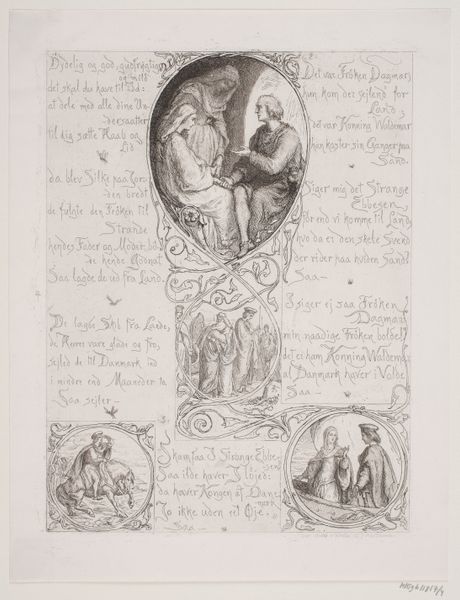 Dydelig og god, gudfrygtig
og mild
det skal du have til Id:
at dele med alle dine Un-
dersaatter
til dig sætte Haab og
Lid
da blev Silke paa Jor-
den bredt
de fulgte den Frøken til
Strande
hendes Fader og Moder bød
hende Godnat
Saa lagde de ud fra Land.
De lagde Skib fra Lande,
de Herrer vare glade og fro,
sejled de til Danmark ind
i mindre end Maaneder to
Saa sejler —
Det var Frøken Dagmar,
hun kom der sejlend for
Land;
det var Konning Waldemar
han kaster sin Ganger paa
Sand.
Siger mig det Strange
Ebbesen,
før end vi komme til Land,
hvo da er den skete Svend
der rider paa hviden Sand?
Saa —
I siger ej saa Frøken
Dagmar
min naadige Frøken bolde!
det er ham Konning Waldemar
al Danmark haver i Volde
Saa —
Skam faa I Strange Ebbe-
sen
Saa ilde haver I løjed:
da haver Kongen af Dane-
mark
Jo ikke uden eet Øje.
Saa —